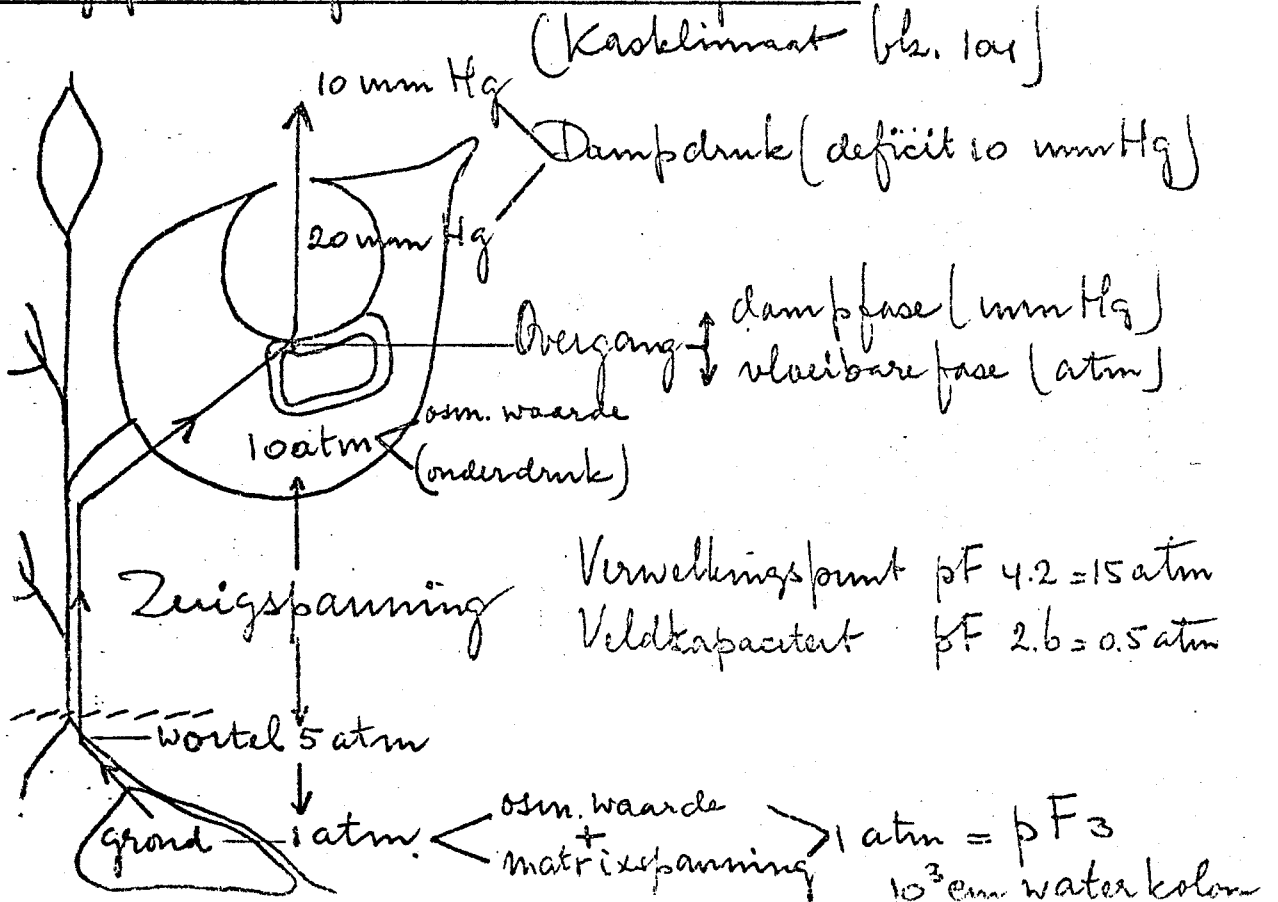 (Kasklimaat blz. 101)
10 mm Hg
Dampdruk (deficit 10 mm Hg)
20 mm Hg
Overgang
dampfase (mm Hg)
vloeibare fase (atm)
10 atm
osm. waarde
(onderdruk)
Zuigspanning
Verwelkingspunt pF 4.2 = 15 atm
Veldkapaciteit pF 2.6 = 0.5 atm
wortel 5 atm
grond
1 atm.
osm. waarde
+
matrixspanning
1 atm = pF 3
10³ cm waterkolom